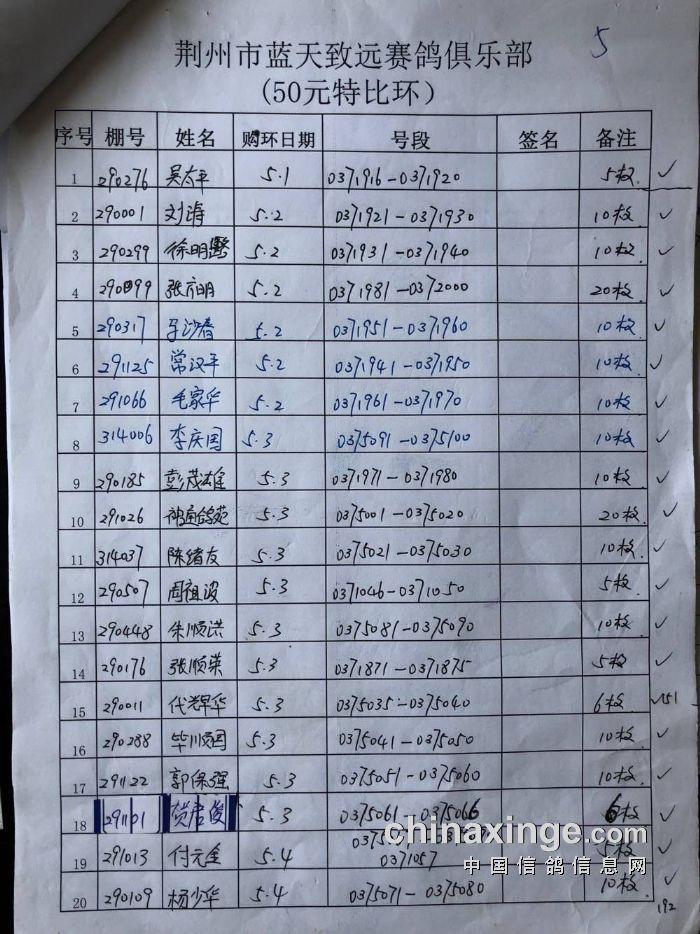 5
荆州市蓝天致远赛鸽俱乐部
(50元特比环)
序号 棚号 姓名 购环日期 号段 签名 备注
1 290276 吴太平 5.1 0371916-0371920 5枚 ✓
2 290001 刘涛 5.2 0371921-0371930 10枚 ✓
3 290299 徐明 5.2 0371931-0371940 10枚 ✓
4 290899 张前明 5.2 0371981-0372000 20枚 ✓
5 290317 5.2 0371951-0371960 10枚 ✓
6 291125 常汉平 5.2 0371941-0371950 10枚 ✓
7 291066 毛家华 5.2 0371961-0371970 10枚 ✓
8 314006 李庆国 5.3 0375091-0375100 10枚 ✓
9 290185 彭茂雄 5.3 0371971-0371980 10枚 ✓
10 291026 鸽苑 5.3 0375001-0375020 20枚 ✓
11 314037 陈绪友 5.3 0375021-0375030 10枚 ✓
12 290507 周祖波 5.3 0371046-0371050 5枚 ✓
13 290448 朱顺洪 5.3 0375081-0375090 10枚 ✓
14 290176 张顺荣 5.3 0371871-0371875 5枚 ✓
15 290011 代辉华 5.3 0375035-0375040 6枚 ✓151
16 290288 毕顺国 5.3 0375041-0375050 10枚 ✓
17 291122 郭保强 5.3 0375051-0375060 10枚 ✓
18 291101 贺启俊 5.3 0375061-0375066 6枚 ✓
19 291013 付元金 5.4 0371057 5枚 ✓
20 290109 杨少华 5.4 0375071-0375080 10枚 ✓
192
chinaxinge.com
中国信鸽信息网